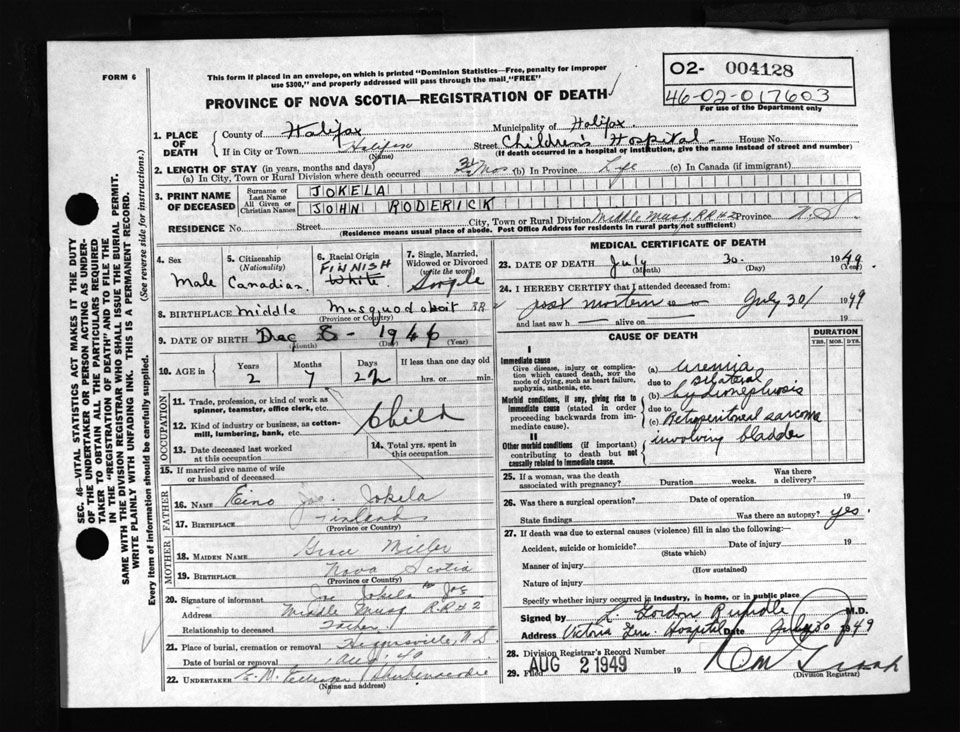 FORM 6
This form if placed in an envelope, on which is printed "Dominion Statistics—Free, penalty for improper
use $300," and properly addressed will pass through the mail "FREE"
PROVINCE OF NOVA SCOTIA—REGISTRATION OF DEATH
02- 004128
46-02-017603
For use of the Department only
1. PLACE OF DEATH
County of Halifax Municipality of Halifax
If in City or Town Halifax Street Children's Hospital House No.
(Name) (If death occurred in a hospital or institution, give the name instead of street and number)
2. LENGTH OF STAY (in years, months and days)
(a) In City, Town or Rural Division where death occurred Mos (b) In Province Life (c) In Canada (if immigrant)
3. PRINT NAME OF DECEASED
Surname or Last Name JOKELA
All Given or Christian Names JOHN RODERICK
RESIDENCE No. Street City, Town or Rural Division Middle Musq. RR#2 Province N.S.
(Residence means usual place of abode. Post Office Address for residents in rural parts not sufficient)
4. Sex Male
5. Citizenship (Nationality) Canadian
6. Racial Origin FINNISH White
7. Single, Married, Widowed or Divorced (write the word) Single
8. BIRTHPLACE Middle Musquodoboit RR 2
(Province or Country)
9. DATE OF BIRTH Dec 8 - 1946
(Month) (Day) (Year)
10. AGE Years 2 Months 7 Days 22 If less than one day old hrs. or min.
OCCUPATION
11. Trade, profession, or kind of work as spinner, teamster, office clerk, etc. Child
12. Kind of industry or business, as cotton-mill, lumbering, bank, etc.
13. Date deceased last worked at this occupation
14. Total yrs. spent in this occupation
15. If married give name of wife or husband of deceased
FATHER
16. NAME Eino Jokela
17. BIRTHPLACE Finland
(Province or Country)
MOTHER
18. MAIDEN NAME Grace Miller
19. BIRTHPLACE Nova Scotia
(Province or Country)
20. Signature of informant Joe Jokela
Address Middle Musq R.R#2
Relationship to deceased Father
21. Place of burial, cremation or removal N.S.
Date of burial or removal Aug
22. UNDERTAKER Shubenacadie
(Name and address)
MEDICAL CERTIFICATE OF DEATH
23. DATE OF DEATH July 30 1949
(Month) (Day) (Year)
24. I HEREBY CERTIFY that I attended deceased from:
post mortem July 30/ 1949
and last saw h alive on 19
CAUSE OF DEATH
DURATION
YRS. MOS. DYS.
I
Immediate cause
Give disease, injury, or complication which caused death, not the mode of dying, such as heart failure, asphyxia, asthenia, etc.
(a) Uremia
due to bilateral
Morbid conditions, if any, giving rise to immediate cause (stated in order proceeding backwards from immediate cause).
(b) hydronephrosis
due to
(c) Retroperitoneal sarcoma
involving bladder
II
Other morbid conditions (if important) contributing to death but not causally related to immediate cause.
25. If a woman, was the death associated with pregnancy? Duration weeks. Was there a delivery?
26. Was there a surgical operation? Date of operation 19
State findings Was there an autopsy? yes.
27. If death was due to external causes (violence) fill in also the following:—
Accident, suicide or homicide? Date of injury 19
(State which)
Manner of injury
(How sustained)
Nature of injury
Specify whether injury occurred in industry, in home, or in public place
Signed by L. Gordon M.D.
Address Victoria Gen. Hospital Date July 30 1949
28. Division Registrar's Record Number
29. Filed AUG 2 1949 19
(Division Registrar)
SEC. 46—VITAL STATISTICS ACT MAKES IT THE DUTY
OF THE UNDERTAKER OR PERSON ACTING AS UNDER-
TAKER TO OBTAIN ALL THE PARTICULARS REQUIRED
IN THE "REGISTRATION OF DEATH" AND TO FILE THE
SAME WITH THE DIVISION REGISTRAR WHO SHALL ISSUE THE BURIAL PERMIT.
WRITE PLAINLY WITH UNFADING INK. THIS IS A PERMANENT RECORD.
Every item of information should be carefully supplied. (See reverse side for instructions.)